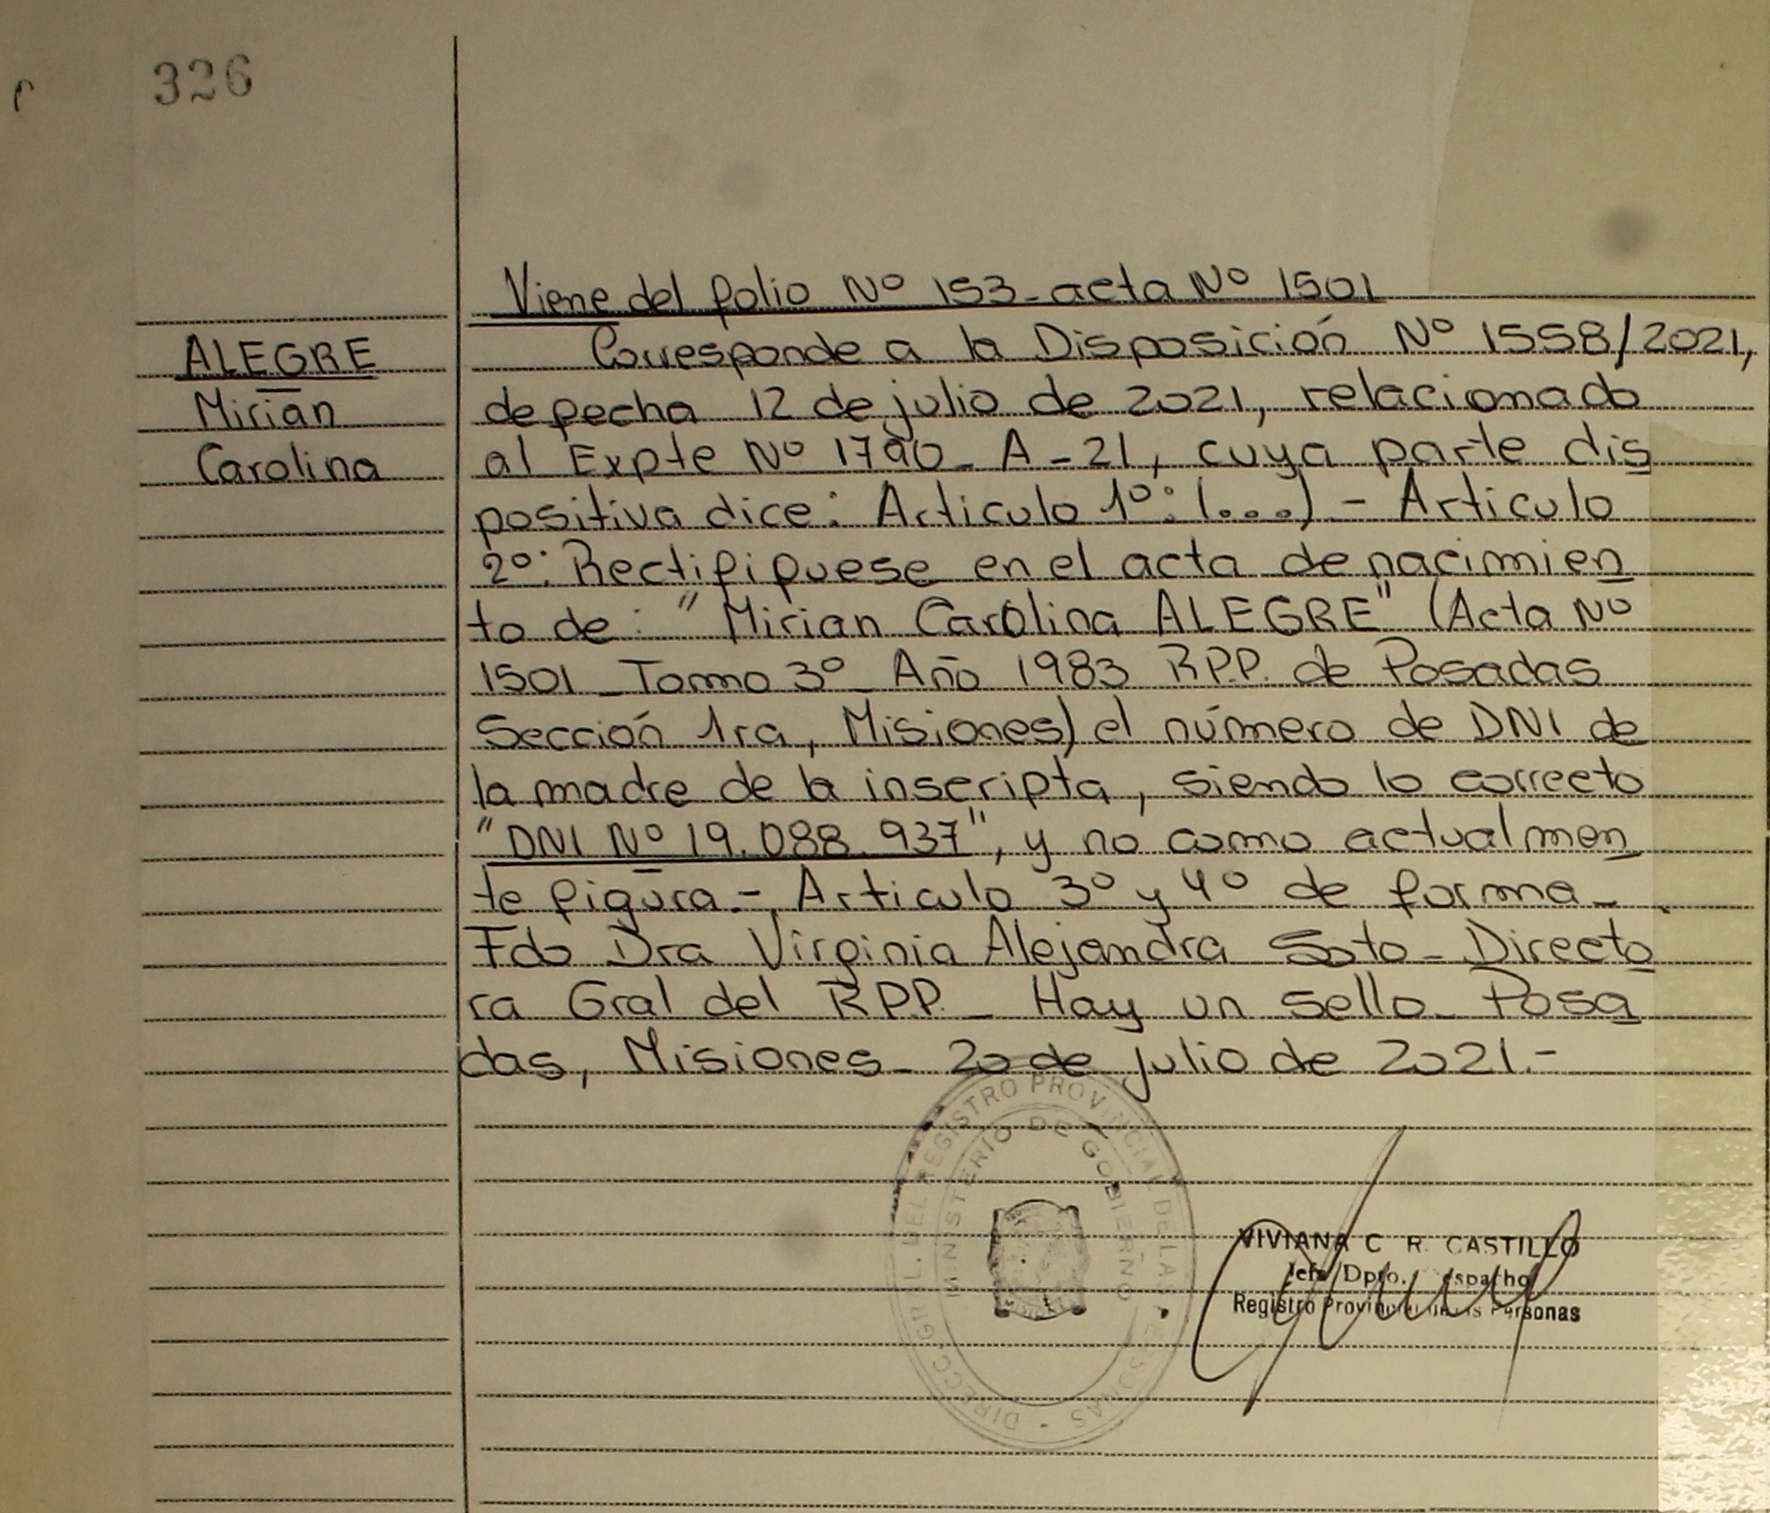 326
Viene del folio Nº 153 - acta Nº 1501
ALEGRE
Mirian
Carolina
Corresponde a la Disposición Nº 1558/2021,
de fecha 12 de julio de 2021, relacionado
al Expte Nº 1790 - A - 21, cuya parte dis
positiva dice: Articulo 1º: (...) - Articulo
2º: Rectifiquese en el acta de nacimien
to de: "Mirian Carolina ALEGRE" (Acta Nº
1501 - Tomo 3º - Año 1983 R.P.P. de Posadas
Sección 1ra, Misiones) el número de DNI de
la madre de la inscripta, siendo lo correcto
"DNI Nº 19.088.937", y no como actualmen
te figura.- Articulo 3º y 4º de forma -
Fdo Dra Virginia Alejandra Soto - Directo
ra Gral del R.P.P. - Hay un sello - Posa
das, Misiones - 20 de julio de 2021.-
DIRECC. GRAL. DEL REGISTRO PROVINCIAL DE LAS PERSONAS
MINISTERIO DE GOBIERNO
VIVIANA C R. CASTILLO
Jefa Dpto. Despacho
Registro Provincial de las Personas